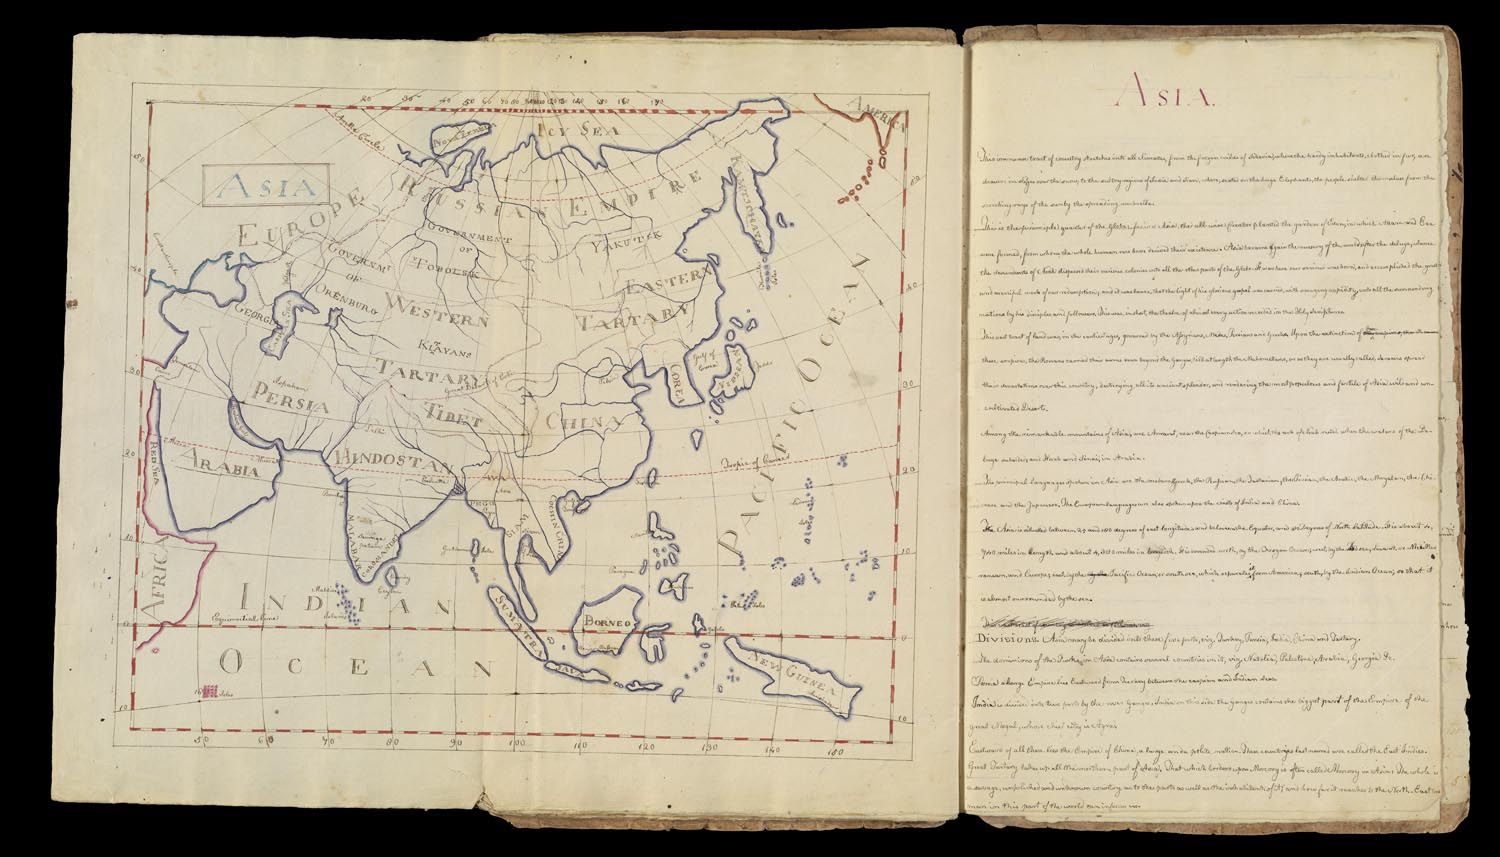 ASIA
AMERICA
ICY SEA
NOVA ZEMBLA
Arctic Circle
EUROPE
RUSSIAN EMPIRE
GOVERNMENT
OF
TOBOLSK
YAKUTSK
KAMTSCHATKA
GOVERNMT
OF
ORENBURG
GEORGIA
WESTERN
TARTARY
EASTERN
TARTARY
PERSIA
Ispahan
TIBET
CHINA
COREA
Gulf of
Corea
ARABIA
RED SEA
HINDOSTAN
Delhi
AVA
PEGU
SIAM
COCHIN CHINA
MALABAR
COROMANDEL
Ceylon
Tropic of Cancer
PACIFIC OCEAN
AFRICA
INDIAN
OCEAN
Equinoctial Line
SUMATRA
BORNEO
JAVA
NEW GUINEA
Isles
50 60 70 80 90 100 110 120 130 140 150
ASIA.
This immense tract of country stretches into all climates, from the frozen wilds of Siberia, where the hardy inhabitants, clothed in fur, are
drawn in sledges over the snow; to the sultry regions of India and Siam, where, seated on the huge Elephants, the people shelter themselves from the
scorching rays of the sun by the spreading umbrella.
This is the principal quarter of the Globe; for in Asia, the all-wise Creator planted the garden of Eden, in which Adam and Eve
were formed, from whom the whole human race have derived their existence. Asia became again the nursery of the world after the deluge, whence
the descendants of Noah dispersed their various colonies into all the other parts of the Globe. It was here our saviour was born, and accomplished the great
and merciful work of our redemption, and it was hence, that the light of his glorious gospel was carried, with amazing rapidity, into all the surrounding
nations by his disciples and followers. This was, in short, the theatre of almost every action recorded in the Holy Scriptures.
This vast tract of land was, in the earliest ages, governed by the Assyrians, Medes, Persians and Greeks. Upon the extinction of
these empires, the Romans carried their arms even beyond the Ganges, till at length the Mahometans, or as they are usually called, Saracens spread
their devastations over this country, destroying all its ancient splendor, and rendering the most populous and fertile of Asia wild and un-
cultivated Desert.
Among the remarkable mountains of Asia, are Ararat, near the Caspian Sea, on which the ark of Noah rested when the waters of the De-
luge subsided; and Horeb and Sinai, in Arabia.
The principal Languages spoken in Asia are the modern Greek, the Russian, the Tartarian, the Persian, the Arabic, the Malayan, the Chi-
nese and the Japanese. The European languages are also spoken upon the coasts of India and China.
Asia is situated between 25 and 180 degrees of east longitude, and between the Equator, and 80 degrees of North Latitude. It is about
miles in length and about miles in breadth. It is bounded north, by the Frozen Ocean; west, by the Red sea, Levant, or Mediter-
ranean, and Europe; east, by the Pacific Ocean, or south sea, which separates it from America; south, by the Indian Ocean; so that it
is almost surrounded by the sea.
Divisions. Asia may be divided into these five parts, viz, Turkey, Persia, India, China and Tartary.
The dominions of the Turks, in Asia contains several countries in it, viz, Natolia, Palestine, Arabia, Georgia &c.
Persia a large Empire lies Eastward from Turkey between the caspian and Indian Seas.
India is divided into two parts by the river Ganges; India on this side the ganges contains the biggest part of the Empire of the
great Mogul, whose chief city is Agra.
Eastward of all these lies the Empire of China, a large and a polite nation. These countries last named are called the East Indies.
Great Tartary takes up all the northern part of Asia. That which borders upon Muscovy is often called Muscovy in Asia: The whole is
a savage, unpolished and unknown country as to the parts as well as the inhabitants of it; and how far it reaches to the North-East no
man in this part of the world can inform us.